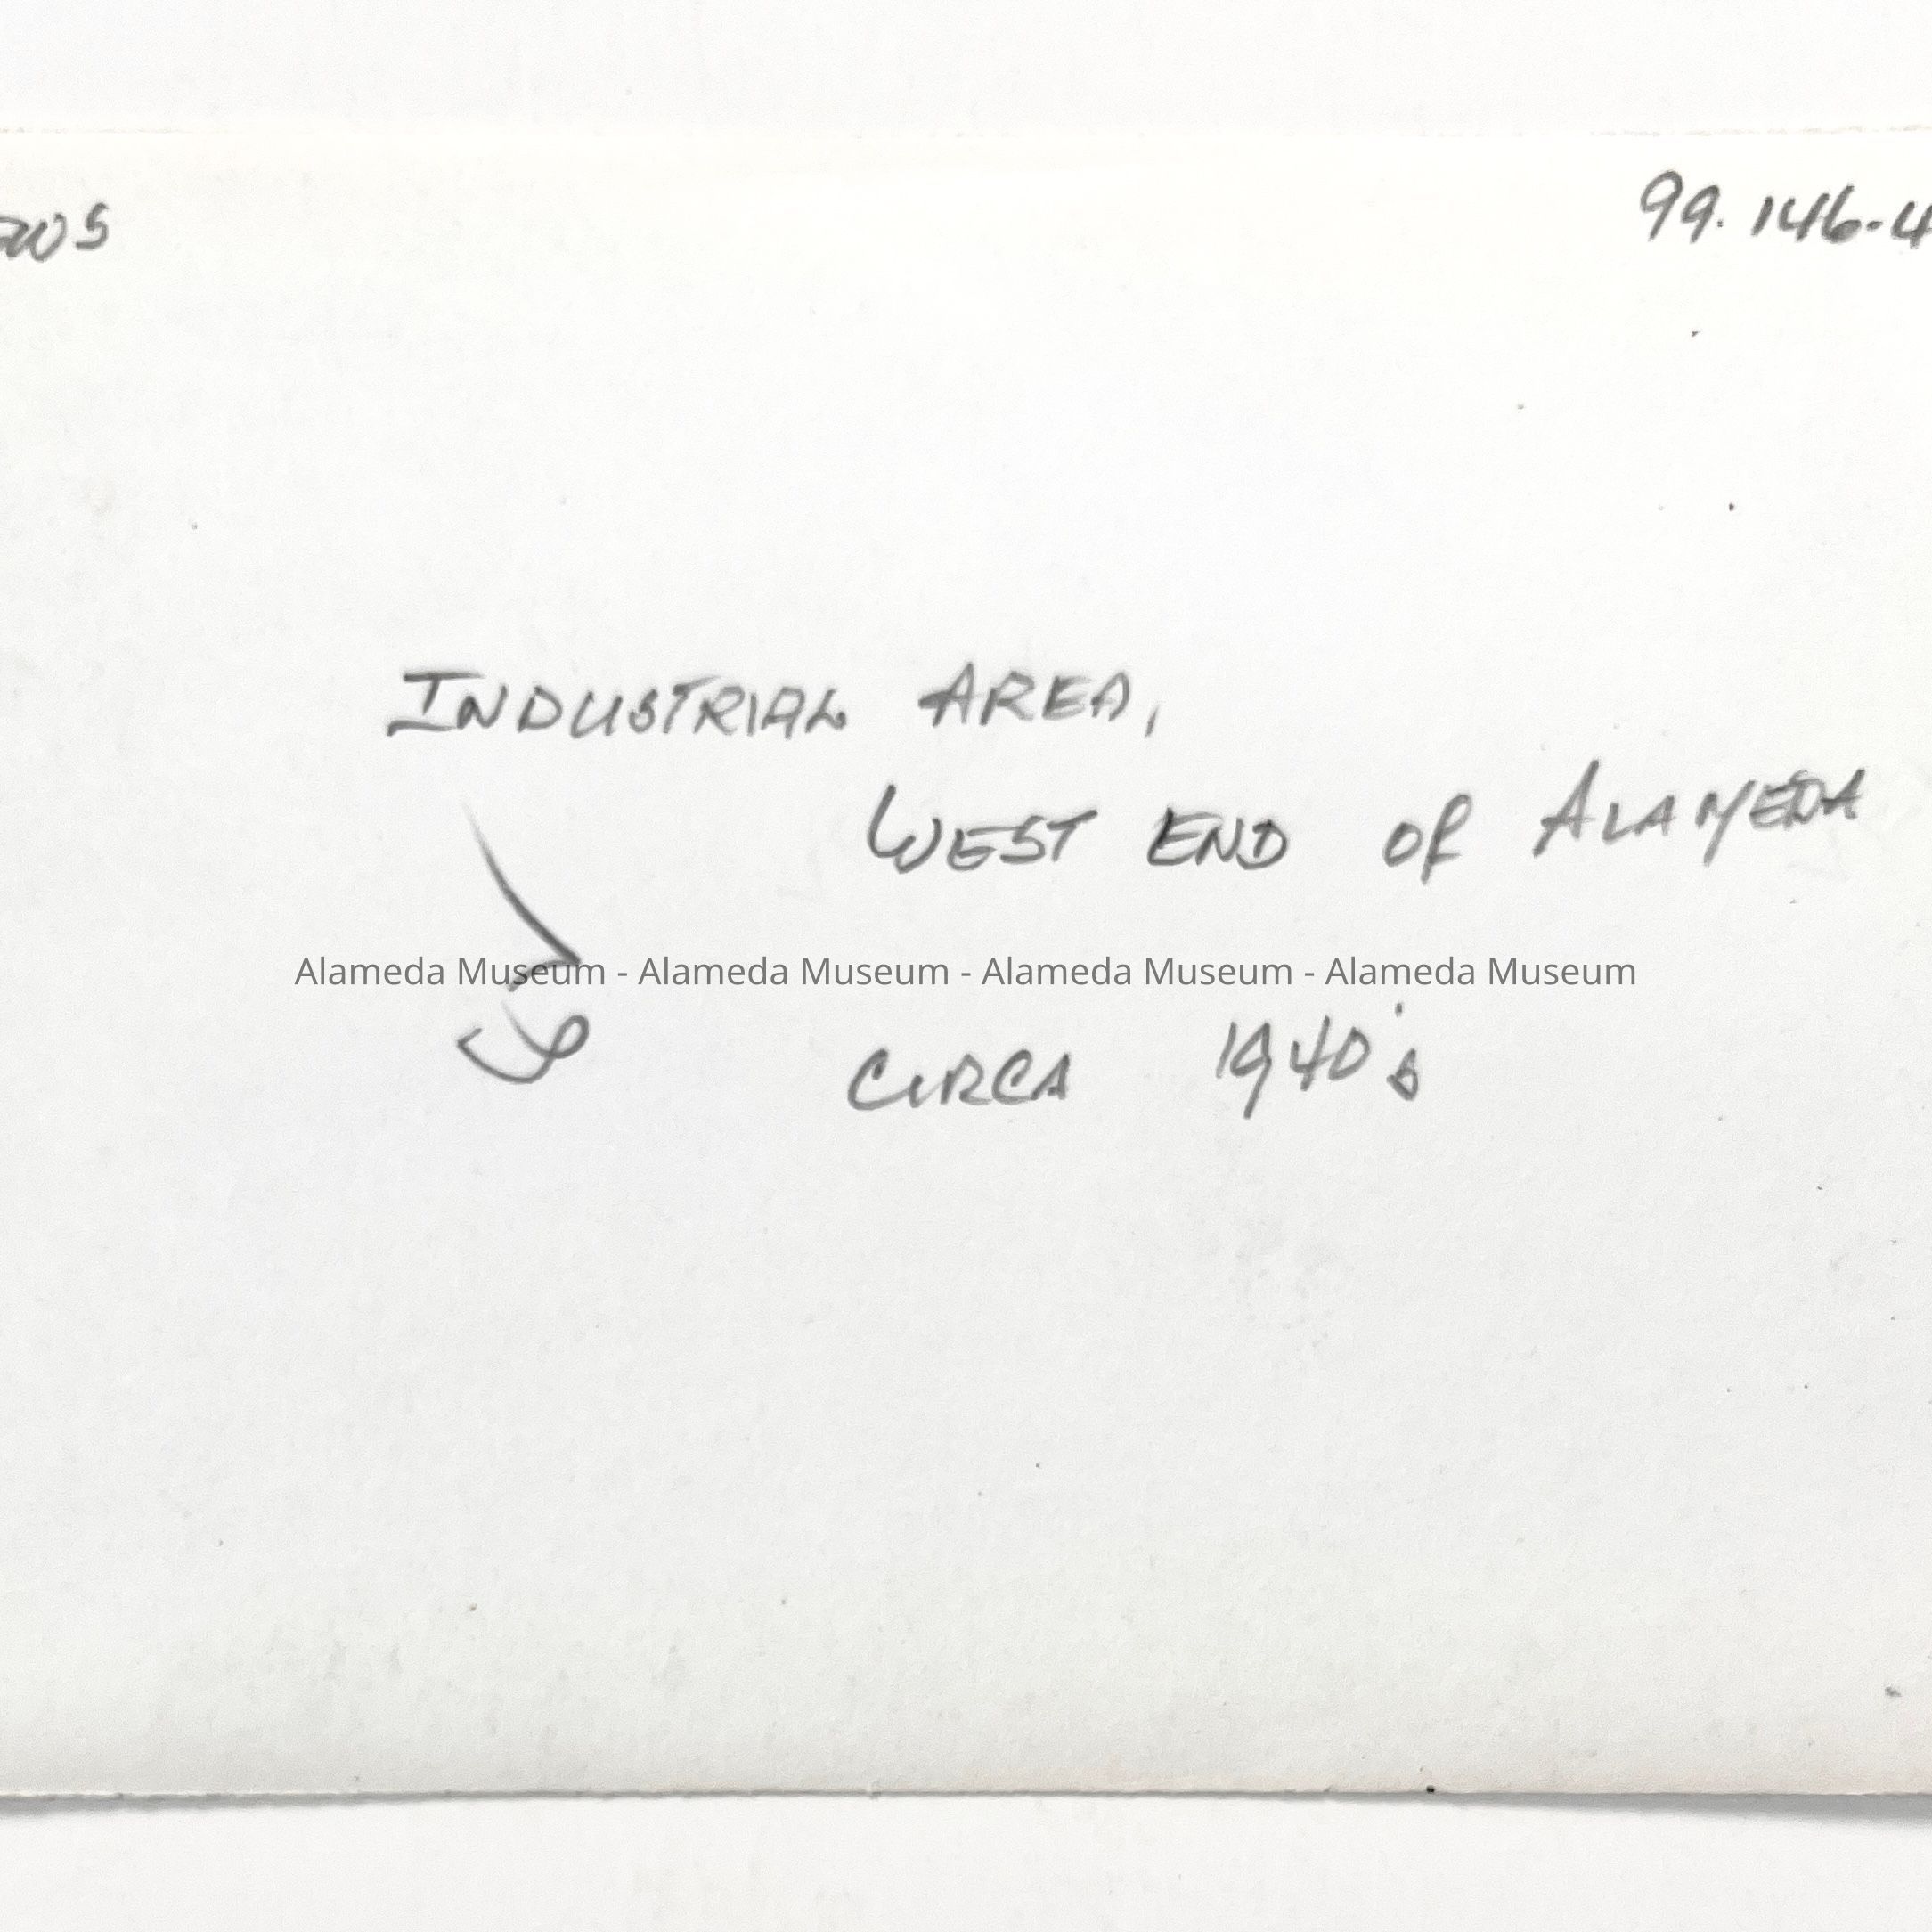 99.146-4
INDUSTRIAL AREA,
WEST END OF ALAMEDA
Alameda Museum - Alameda Museum - Alameda Museum - Alameda Museum
CIRCA 1940's